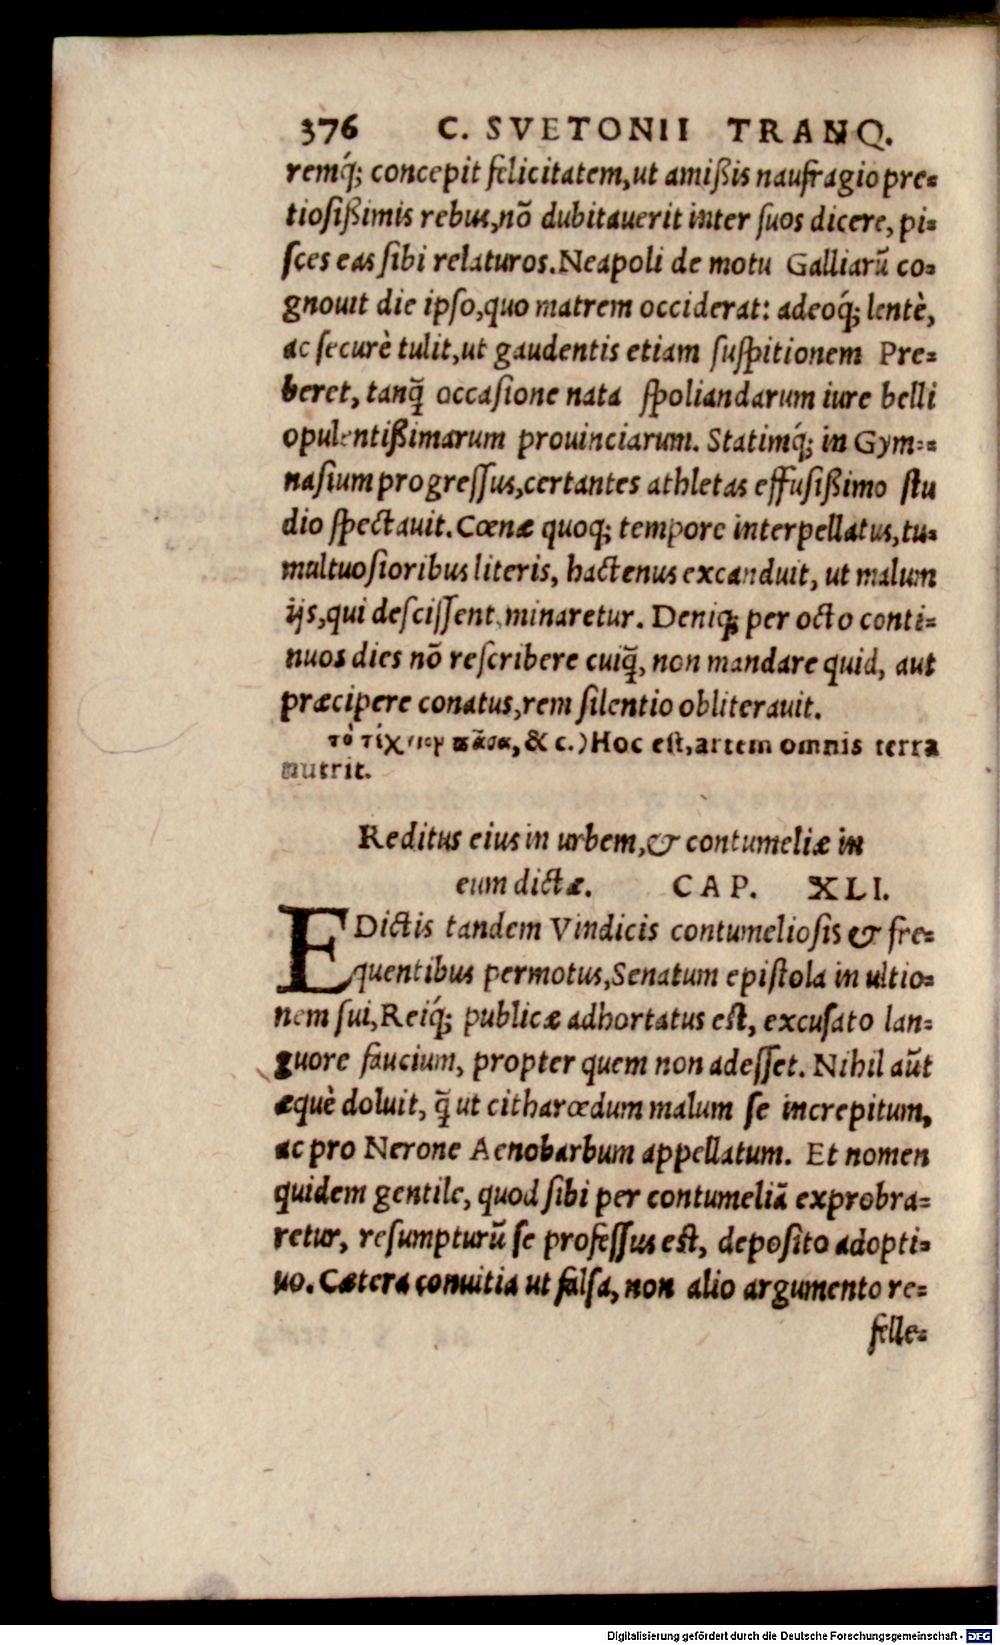 376 C. SVETONII TRANQ.
remq́; concepit felicitatem, ut amißis naufragio pre-
tiosißimis rebus, nō dubitauerit inter suos dicere, pi-
sces eas sibi relaturos. Neapoli de motu Galliarū co-
gnouit die ipso, quo matrem occiderat: adeoq́; lentè,
ac securè tulit, ut gaudentis etiam suspitionem Pre-
beret, tanq̃ occasione nata spoliandarum iure belli
opulentißimarum prouinciarum. Statimq́; in Gym-
nasium progressus, certantes athletas effusißimo stu
dio spectauit. Cœnæ quoq; tempore interpellatus, tu-
multuosioribus literis, hactenus excanduit, ut malum
ijs, qui descissent minaretur. Deniq; per octo conti-
nuos dies nō rescribere cuiq̃, non mandare quid, aut
præcipere conatus, rem silentio obliterauit.
τὸ πᾶσα, & c.) Hoc est, artem omnis terra
nutrit.
Reditus eius in urbem, & contumeliæ in
eum dictæ. CAP. XLI.
EDictis tandem Vindicis contumeliosis & fre-
quentibus permotus, Senatum epistola in ultio-
nem sui, Reiq́; publicæ adhortatus est, excusato lan-
guore faucium, propter quem non adesset. Nihil aũt
æquè doluit, q̃ ut citharœdum malum se increpitum,
ac pro Nerone Aenobarbum appellatum. Et nomen
quidem gentile, quod sibi per contumeliā exprobra-
retur, resumpturū se professus est, deposito adopti-
uo. Cætera conuitia ut falsa, non alio argumento re-
felle-
Digitalisierung gefördert durch die Deutsche Forschungsgemeinschaft - DFG